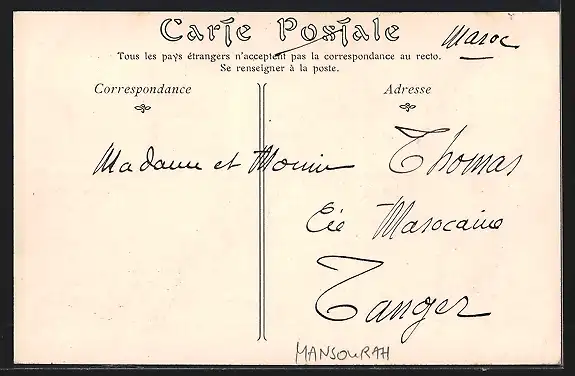 Carte Postale
Maroc
Tous les pays étrangers n'acceptent pas la correspondance au recto.
Se renseigner à la poste.
Correspondance
Adresse
Madame et Monsieur Thomas
Cie Marocaine
Tanger
MANSOURAH